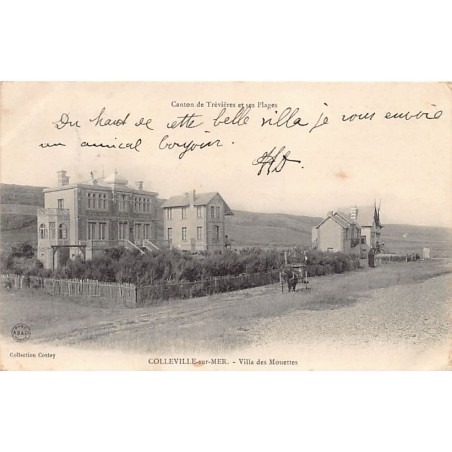 Canton de Trévières et ses Plages
Du haut de cette belle villa je vous envoie
un amical bonjour.
Collection Contey
COLLEVILLE-sur-MER. - Villa des Mouettes